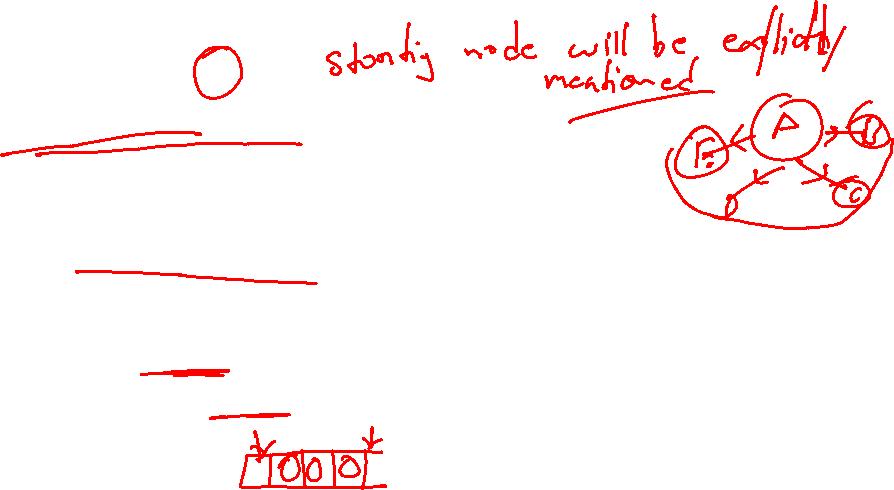 starting node will be explicitly
mentioned
A
B
E
C
D